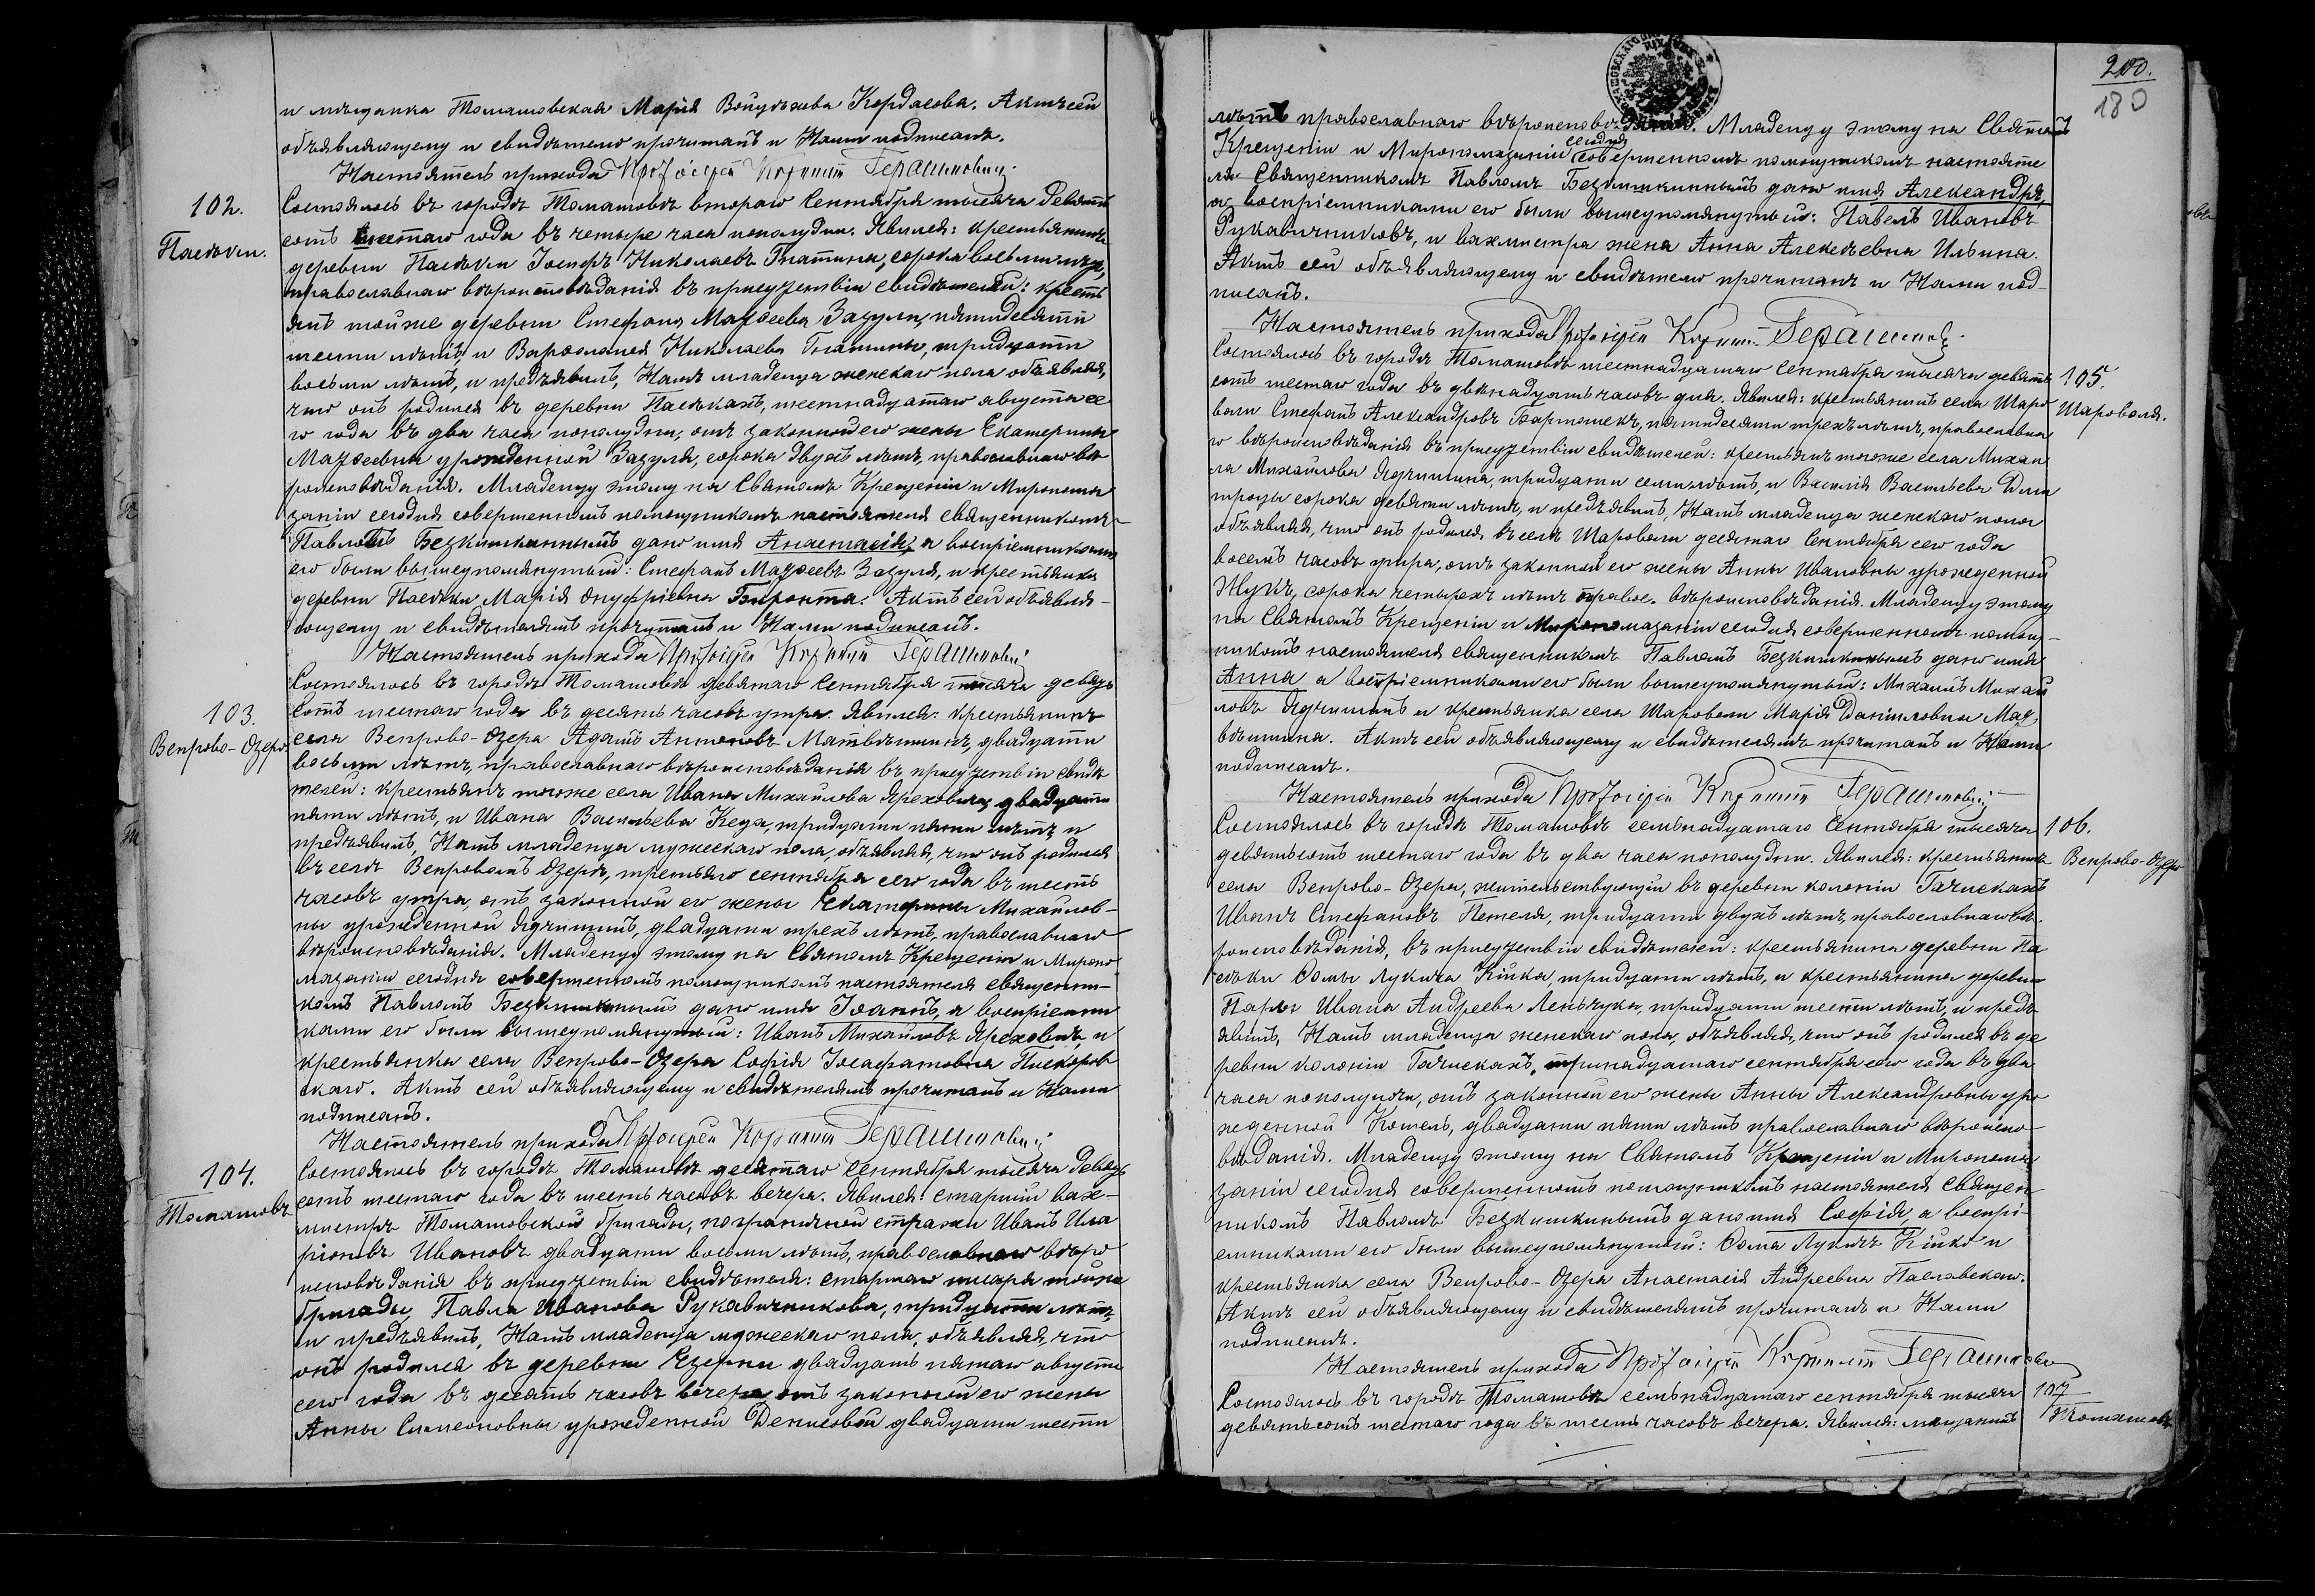 и мѣщанка Томашовская Марія Войцѣхова Кордасова. Актъ сей
объявляющему и свидѣтелю прочитанъ и Нами подписанъ.
Настоятель прихода Протоіерей Кориилій Герашиловичъ
102.
Пасѣки.
Состоялось въ городѣ Томашовѣ второго Сентября тысяча девять
сотъ шестаго года въ четыре часа пополудни. Явился: крестьянинъ
деревни Пасѣки Іосифъ Николаевъ Гнатина, сорока восьми лѣтъ,
православнаго вѣроисповѣданія въ присутствіи свидѣтелей: кресть
янъ той же деревни Стефана Маѳеева Зазули, пятидесяти
шести лѣтъ, и Варѳоломея Николаева Гнатины, тридцати
восьми лѣтъ, и предъявилъ Намъ младенца женскаго пола объявляя,
что онъ родился въ деревни Пасѣкахъ, шестнадцатаго августа се
го года въ два часа пополудни, отъ законной его жены Екатерины
Маѳеевны урожденной Зазуля, сорока двухъ лѣтъ, православнаго вѣ
роисповѣданія. Младенцу этому на Святомъ Крещеніи и Миропома
заніи сегодня совершенномъ помощникомъ настоятеля священникомъ
Павломъ Безкишкинымъ дано имя Анастасія, а воспріемниками
его были вышеупомянутый: Стефанъ Маѳеевъ Зазуля, и крестьянка
деревни Пасѣки Марія Онуфріевна Биронта. Актъ сей объявля-
ющему и свидѣтелямъ прочитанъ и Нами подписанъ.
Настоятель прихода Протоіерей Кориилій Герашиловичъ
103.
Вепрово-Озеро
Состоялось въ городѣ Томашовѣ девятаго Сентября тысяча девять
сотъ шестаго года въ десять часовъ утра. Явился: крестьянинъ
села Вепрово-Озера Адамъ Антоновъ Матвѣишинъ, двадцати
восьми лѣтъ, православнаго вѣроисповѣданія въ присутствіи свидѣ
телей: крестьянъ тоже села Ивана Михайлова Яреховича, двадцати
пяти лѣтъ, и Ивана Васильева Кеца, тридцати пяти лѣтъ и
предъявилъ, Намъ младенца мужескаго пола, объявляя, что онъ родился
въ селѣ Вепровомъ Озерѣ, третьяго сентября сего года въ шесть
часовъ утра, отъ законной его жены Екатерины Михайлов-
ны урожденной Ядчишинъ, двадцати трехъ лѣтъ, православнаго
вѣроисповѣданія. Младенцу этому на Святомъ Крещеніи и Миропо
мазаніи сегодня совершенномъ помощникомъ настоятеля священни-
комъ Павломъ Безкишкинымъ дано имя Іоаннъ, а воспріемни
ками его были вышеупомянутый: Иванъ Михайловъ Яреховичъ, и
крестьянка села Вепрово-Озера Софія Іосафатовна Пискорев
скаго. Актъ сей объявляющему и свидѣтелямъ прочитанъ и Нами
подписанъ.
Настоятель прихода Протоіерей Кориилій Герашиловичъ
104.
Томашовъ
Состоялось въ городѣ Томашовѣ десятаго Сентября тысяча девять
сотъ шестаго года въ шесть часовъ вечера. Явился: старшій вах-
мистръ Томашовской бригады, пограничной стражи Иванъ Ила
ріоновъ Ивановъ двадцати восьми лѣтъ, православнаго вѣро
исповѣданія въ присутствіи свидѣтеля: старшаго писаря той же
бригады, Павла Иванова Рукавичникова, тридцати лѣтъ,
и предъявилъ, Намъ младенца мужескаго пола, объявляя, что
онъ родился въ деревни Езерни двадцать пятаго августа
сего года въ десять часовъ вечера отъ законной его жены
Анны Симеоновны урожденной Денисовой двадцати шести
200.
180
лѣтъ православнаго вѣроисповѣданія. Младенцу этому на Святомъ
Крещеніи и Миропомазаніи сегодня совершенномъ помощникомъ настояте
ля Священникомъ Павломъ Безкишкинымъ дано имя Александръ,
а воспріемниками его были вышеупомянутый: Павелъ Ивановъ
Рукавичниковъ, и вахмистра жена Анна Алексѣевна Ильина.
Актъ сей объявляющему и свидѣтелю прочитанъ и Нами под-
писанъ.
Настоятель прихода Протоіерей Кориилій Герашиловичъ
105.
Шароволя.
Состоялось въ городѣ Томашовѣ шестнадцатаго Сентября тысяча девять
сотъ шестаго года въ двѣнадцать часовъ дня. Явился: крестьянинъ села Шаро
воли Стефанъ Александровъ Бартошекъ, пятидесяти трехъ лѣтъ, православна
го вѣроисповѣданія въ присутствіи свидѣтелей: крестьянъ тоже села Михаи
ла Михайлова Ядчишина, тридцати семи лѣтъ, и Василія Васильева Дми
троцы сорока девяти лѣтъ, и предъявилъ, Намъ младенца женскаго пола
объявляя, что онъ родился въ селѣ Шароволи десятаго Сентября сего года
восемь часовъ утра, отъ законной его жены Анны Ивановны урожденной
Жукъ, сорока четырехъ лѣтъ правос. вѣроисповѣданія. Младенцу этому
на Святомъ Крещеніи и Миропомазаніи сегодня совершенномъ помощ-
никомъ настоятеля священникомъ Павломъ Безкишкинымъ дано имя
Анна а воспріемниками его были вышеупомянутый: Михаилъ Михай
ловъ Ядчишинъ и крестьянка села Шароволи Марія Даніиловна Мад
вѣишина. Актъ сей объявляющему и свидѣтелямъ прочитанъ и Нами
подписанъ.
Настоятель прихода Протоіерей Кориилій Герашиловичъ
106.
Вепрово-Озеро
Состоялось въ городѣ Томашовѣ семьнадцатаго Сентября тысяча
девятьсотъ шестаго года въ два часа пополудни. Явился: крестьянинъ
села Вепрово-Озера, жительствующій въ деревни колоніи Гачискахъ
Иванъ Стефановъ Петеля, тридцати двухъ лѣтъ, православнаго вѣ-
роисповѣданія, въ присутствіи свидѣтелей: крестьянина деревни Па
сѣки Ѳомы Лукича Кійка, тридцати лѣтъ, и крестьянина деревни
Пары Ивана Андреева Леньчука, тридцати шести лѣтъ, и предъ
явилъ, Намъ младенца женскаго пола, объявляя, что онъ родился въ де
ревни колоніи Гачискахъ, тринадцатаго сентября сего года въ два
часа пополуночи, отъ законной его жены Анны Александровны уро
жденной Котель, двадцати пяти лѣтъ православнаго вѣроиспо-
вѣданія. Младенцу этому на Святомъ Крещеніи и Миропома
заніи сегодня совершенномъ помощникомъ настоятеля Священ-
никомъ Павломъ Безкишкинымъ дано имя Софія, а воспрі-
емниками его были вышеупомянутый: Ѳома Лукичъ Кійко и
крестьянка села Вепрово-Озера Анастасія Андреевна Паславскаго.
Актъ сей объявляющему и свидѣтелямъ прочитанъ и Нами
подписанъ.
Настоятель прихода Протоіерей Кориилій Герашиловичъ
107
Томашовъ
Состоялось въ городѣ Томашовѣ семьнадцатаго сентября тысяча
девятьсотъ шестаго года въ шесть часовъ вечера. Явился: мѣщанинъ